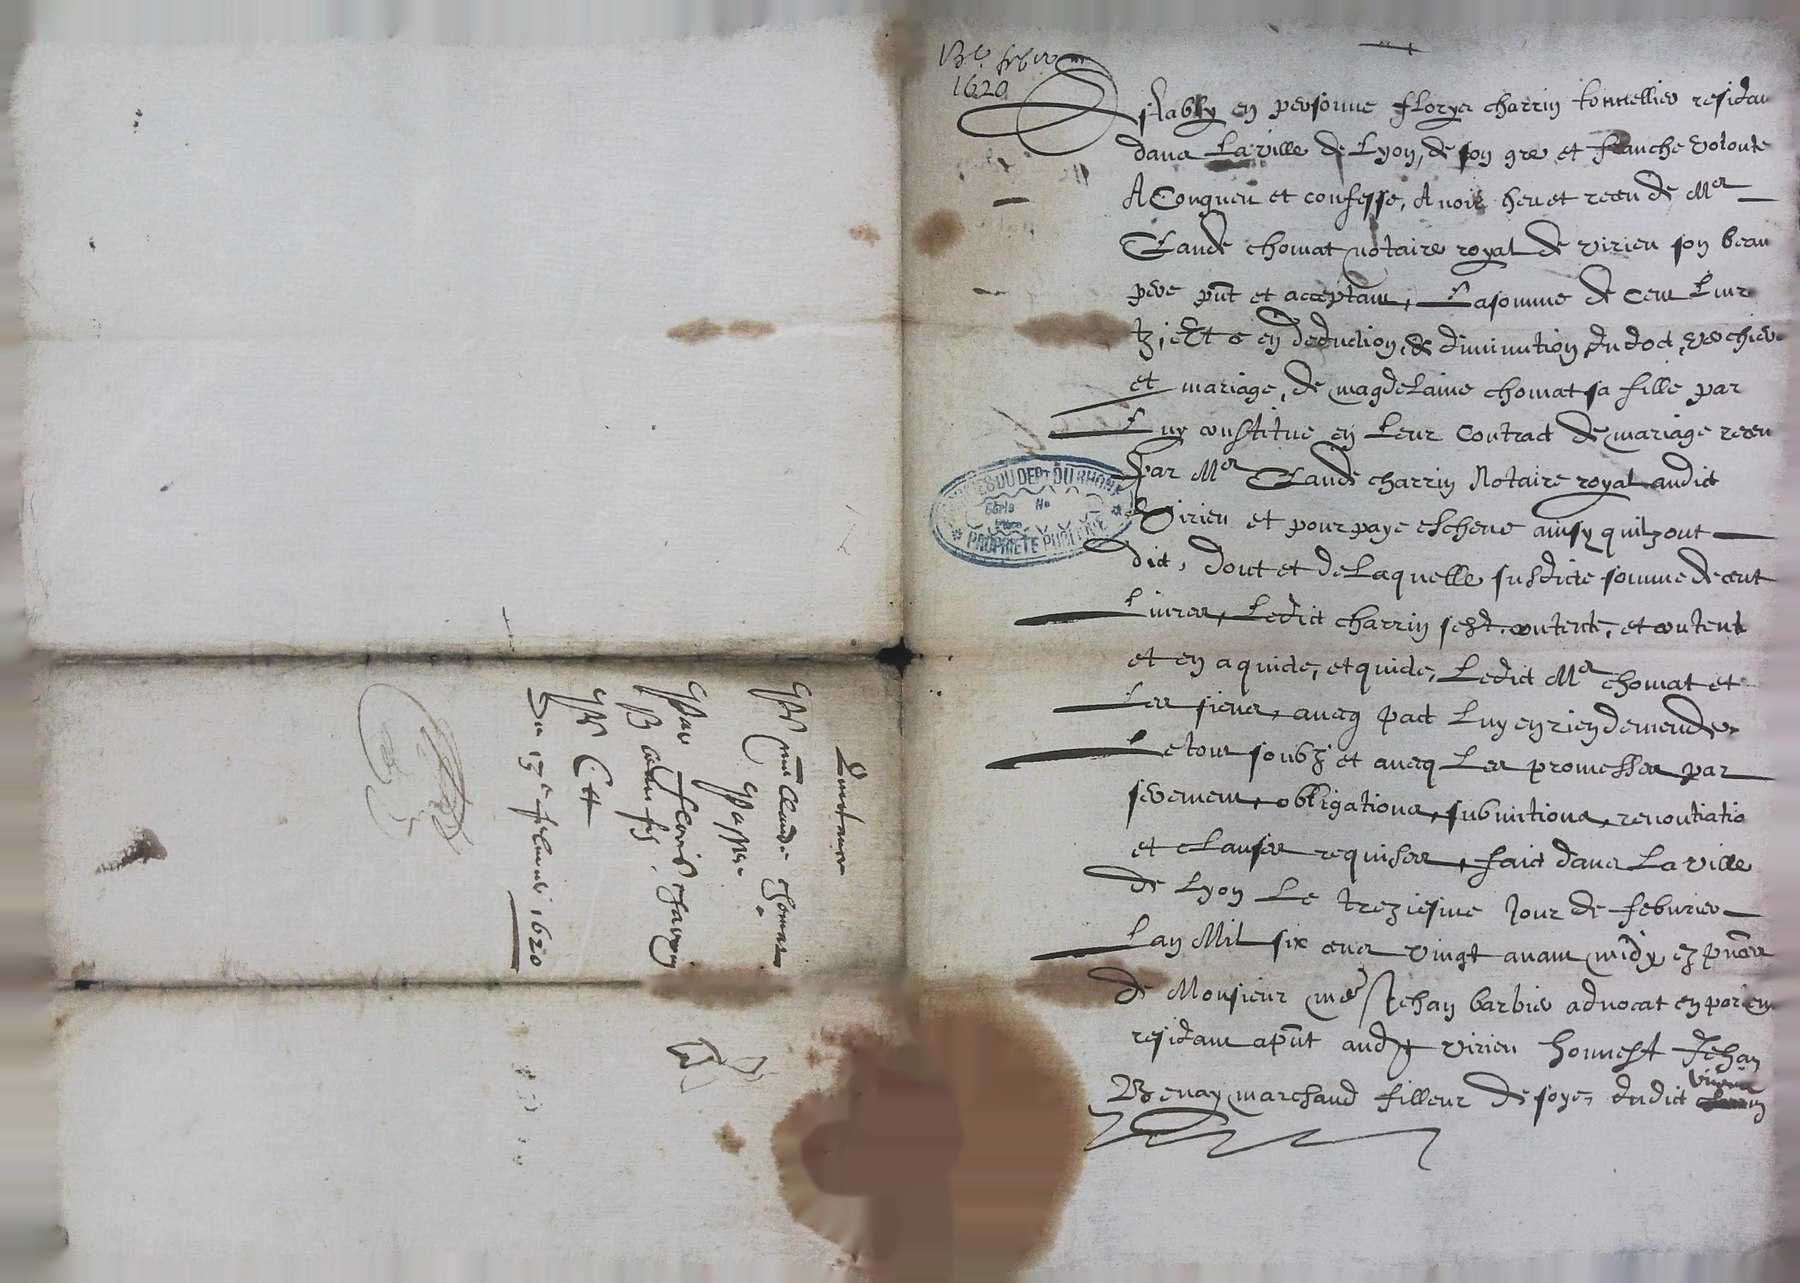 13e febvr
1620
Estably en personne florys charrin tonnellier residan
dans La ville de Lyon, de son gre et franche volonte
A Congneu et confesse, Avoir heu et receu de Mes
Claude chomat notaire royal de virieu son beau
pere pnt et acceptant, La somme de Cent Livr
tz et en deduction & diminution du dot, verchier
et mariage, de magdelaine chomat sa fille par
Luy constitue en Leur Contract de mariage receu
par Mes Claude charrin Notaire royal audict
Virieu et pour paye escheue ainsy quilz ont
dict, dont et de Laquelle susdicte somme de cent
Livres, Ledict charrin sest contente, et content
et en a quicte, et quicte, Ledict Mes chomat et
Les siens, avecq pact Luy en rien demender
Le tout soubz et avecq Les promesses par
serement, obligations, submitions, renontiatio
et clauses requises, faict dans La ville
de Lyon Le treziesme Jour de febvrier
Lan Mil six cens vingt avant midy ez pnces
de Monsieur me Jehan barbier advocat en
residant a pnt aud virieu honnest Jehan
Benay marchand filleur de soye, dudict virieu
ARCHIVES DU DEPT DU RHONE
PROPRIETE PUBLIQUE
Quictance
Pr me Claude Chomat
Passee
Par Floris Charrin
B
Pr C tt
Du 13e febvrier 1620